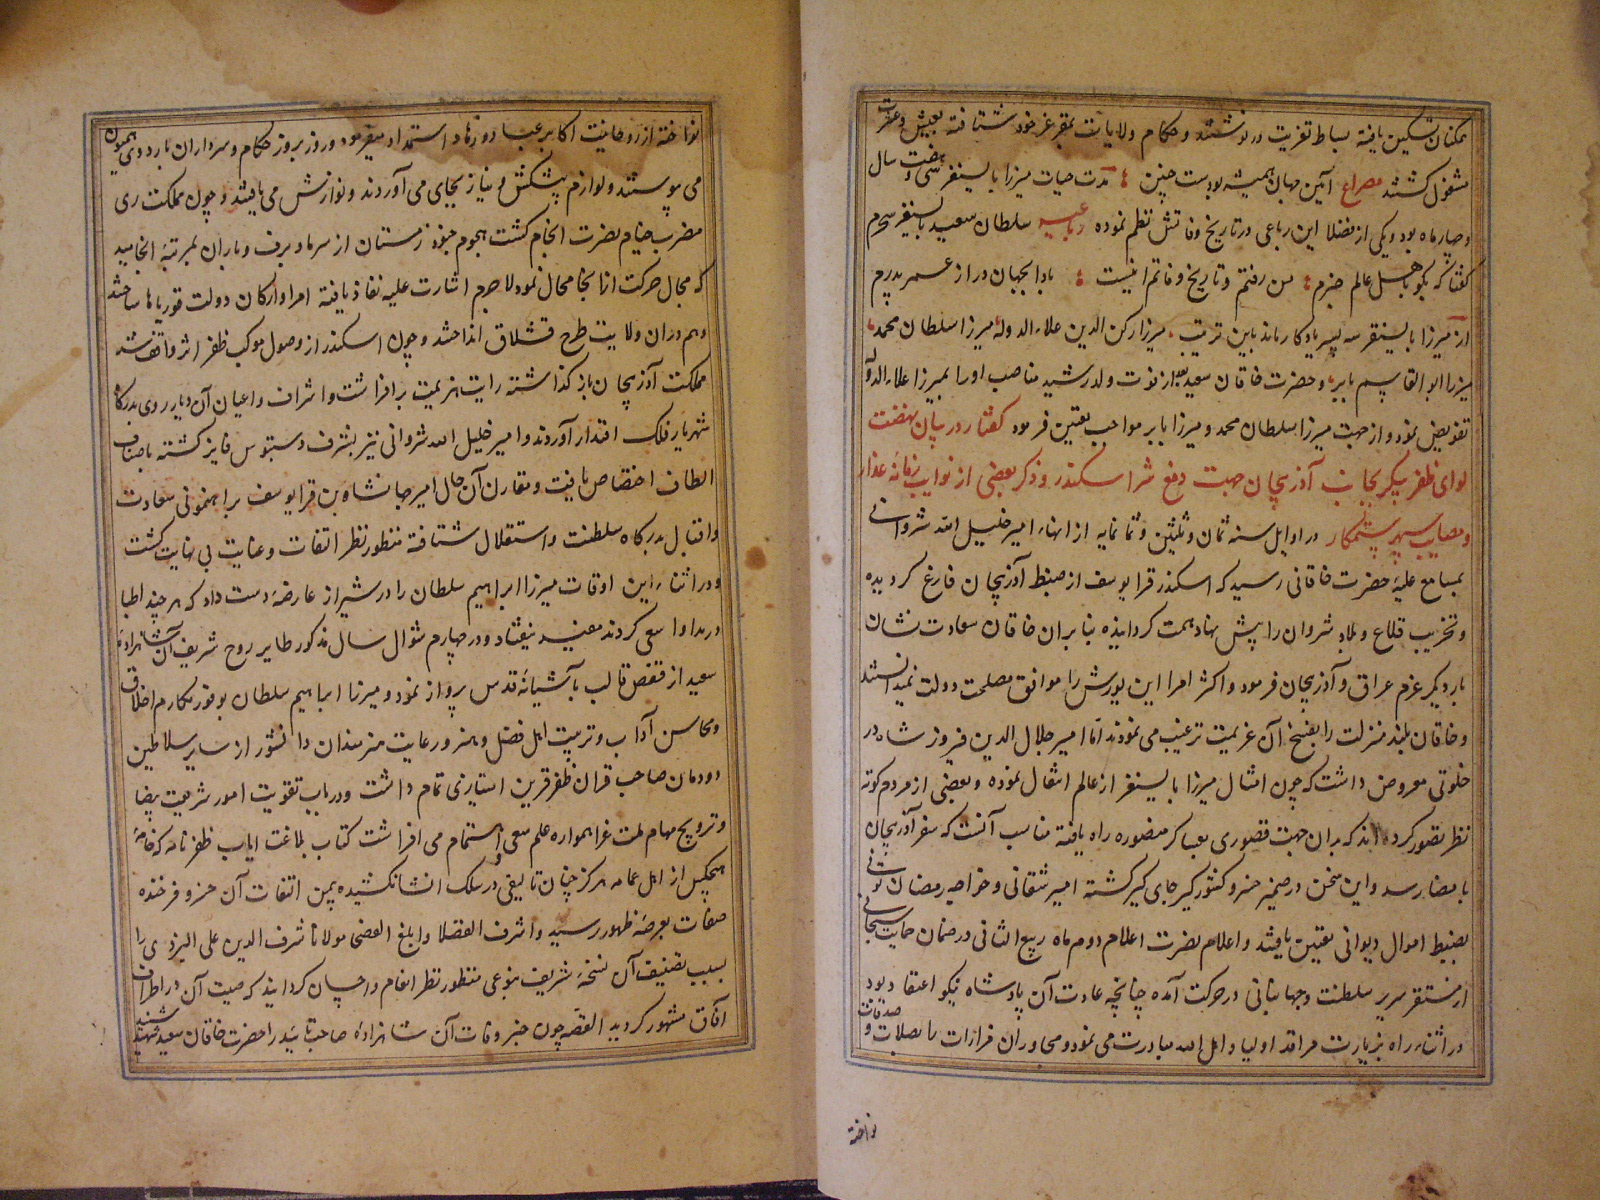 ممکنان تسکین یافته بساط تعزیت درنوشتند و حکام ولایات بمقر عز خود شتافته بعیش و عشرت
مشغول گشتند مصراع آیین جهان همیشه بودست چنین مدت حیات میرزا بایسنغر سی و هفت سال
و چهار ماه بود و یکی از فضلا این رباعی در تاریخ وفاتش نظم نموده رباعیه سلطان سعید بایسنغر سحرم
گفتا که بگو باهل عالم خبرم من رفتم و تاریخ وفاتم اینست بادا بجهان دراز عمر پدرم
از میرزا بایسنغر سه پسر یادگار ماند باین ترتیب میرزا رکن الدین علاء الدوله میرزا سلطان محمد
میرزا ابو القاسم بابر و حضرت خاقان سعید بعد از فوت ولد رشید مناصب او را بمیرزا علاء الدوله
تفویض نمود و از جهت میرزا سلطان محمد و میرزا بابر مواجب تعیین فرمود گفتار در بیان نهضت
لوای ظفر پیکر بجانب آذربیجان جهت دفع شر اسکندر و ذکر بعضی از نوایب زمانه غدار
و مصایب سپهر ستمکار در اوایل سنه ثمان و ثلثین و ثمانمایه از انهاء امیر خلیل الله شروانی
بمسامع علیه حضرت خاقانی رسید که اسکندر قرا یوسف از ضبط آذربیجان فارغ گردیده
و تخریب قلاع و بلاد شروان را پیش نهاد همت گردانیده بنابران خاقان سعادت نشان
بار دیگر عزم عراق و آذربیجان فرمود و اکثر امرا این یورش را موافق مصلحت دولت نمیدانستند
و خاقان بلند منزلت را بفسخ آن عزیمت ترغیب می نمودند اما امیر جلال الدین فیروز شاه در
خلوتی معروض داشت که چون امثال میرزا بایسنغر از عالم انتقال نموده و بعضی از مردم کوته
نظر تصور کرده اند که بدان جهت قصوری بعساکر منصوره راه یافته مناسب آنست که سفر آذربیجان
بامضا رسد و این سخن در ضمیر خسرو کشورگیر جای گیر گشته امیر شقانی و خواجه رمضان تونی
بضبط اموال دیوانی تعیین یافتند و اعلام نصرت اعلام دوم ماه ربیع الثانی در ضمان حمایت سبحانی
از مستقر سریر سلطنت و جهانبانی در حرکت آمده چنانچه عادت آن پادشاه نیکو اعتقاد بود
در اثناء راه بزیارت مراقد اولیا و اهل الله مبادرت می نمود و مجاوران مزارات را بصلات و صدقات
نواخته
نواخته از روحانیت اکابر عباد و زهاد استمداد میفرمود و روز بروز حکام و سرداران باردوی همیون
می پیوستند و لوازم پیشکش و نیاز بجای می آوردند و نوازش می یافتند و چون مملکت ری
مضرب خیام نصرت انجام گشت هجوم جنود زمستان از سرما و برف و باران بمرتبه انجامید
که مجال حرکت از انجا محال نمود لاجرم اشارت علیه نفاذ یافته امرا و ارکان دولت قوریاها ساختند
و هم دران ولایت طرح قشلاق انداختند و چون اسکندر از وصول موکب ظفر اثر واقف شد
مملکت آذربیجان باز گذاشته رایت هزیمت برافراشت و اشراف و اعیان آن دیار روی بدرگاه
شهریار فلک اقتدار آوردند و امیر خلیل الله شروانی نیز بشرف دستبوس فایز گشته باصناف
الطاف اختصاص یافت و مقارن آن حال امیر جهانشاه بن قرا یوسف براهنمونی سعادت
و اقبال بدرگاه سلطنت و استقلال شتافته منظور نظر التفات و عنایت بی نهایت گشت
و در اثناء این اوقات میرزا ابراهیم سلطان را در شیراز عارضه دست داد که هر چند اطبا
در مداوا سعی کردند مفید نیفتاد و در چهارم شوال سال مذکور طایر روح شریف آن شاهزاده
سعید از قفص قالب بآشیانه قدس پرواز نمود و میرزا ابراهیم سلطان بوفور مکارم اخلاق
و محاسن آداب و تربیت اهل فضل و هنر و رعایت هنرمندان دانشور از سایر سلاطین
دودمان صاحب قران ظفر قرین امتیازی تمام داشت و در باب تقویت امور شریعت بیضا
و ترویج مهام ملت غرا همواره علم سعی و اهتمام می افراشت کتاب بلاغت ایاب ظفرنامه که خامه
هیچکس از اهل عمامه هرگز چنان تالیفی در سلک انشا نکشیده بیمن التفات آن خسرو فرخنده
صفات بعرصه ظهور رسید و اشرف الفضلا و ابلغ الفصحا مولانا شرف الدین علی الیزدی را
بسبب تصنیف آن نسخه شریف بنوعی منظور نظر انعام و احسان گردانید که صیت آن در اطراف
آفاق مشهور گردید القصه چون خبر وفات آن شاهزاده صاحب تایید را حضرت خاقان سعید شنید